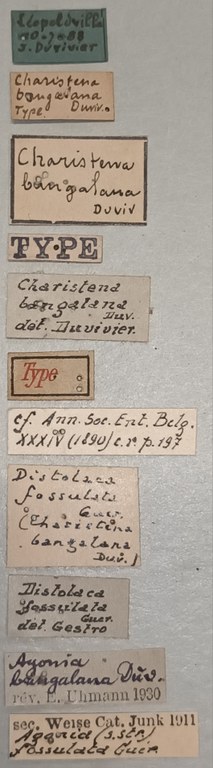 Léopoldville
10-7-88
J. Duvivier
Charistena
bangalana
Type. Duviv.
Charistena
bangalana
Duviv
TYPE
Charistena
bangalana
Duv.
det. Duvivier.
Type
cf. Ann. Soc. Ent. Belg.
XXXIV (1890) c. r. p. 197
Distolaca
fossulata
Guér.
(Charistena
bangalana
Duv.)
Distolaca
fossulata
Guér.
det. Gestro
Agonia
bangalana Duv.
rév. E. Uhmann 1930
sec. Weise Cat. Junk 1911
Agonia (s. str)
fossulata Guér